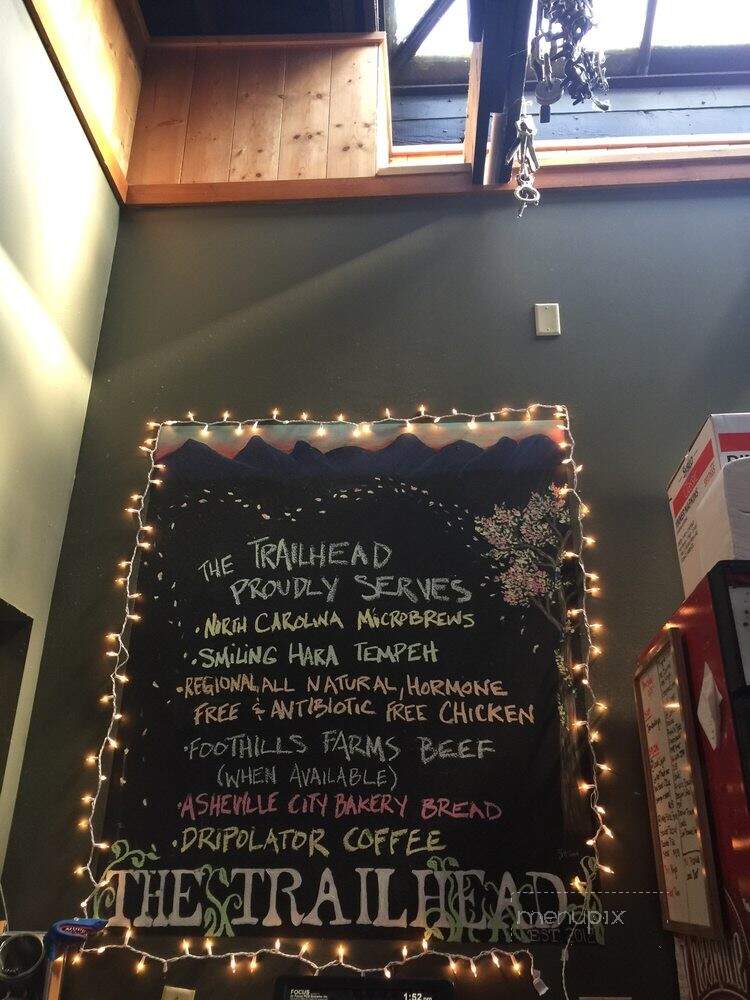 THE TRAILHEAD
PROUDLY SERVES
• NORTH CAROLINA MICROBREWS
• SMILING HARA TEMPEH
• REGIONAL, ALL NATURAL, HORMONE
FREE & ANTIBIOTIC FREE CHICKEN
• FOOTHILLS FARMS BEEF
(WHEN AVAILABLE)
• ASHEVILLE CITY BAKERY BREAD
• DRIPOLATOR COFFEE
THE TRAILHEAD
menupix
FOCUS
1:52 pm